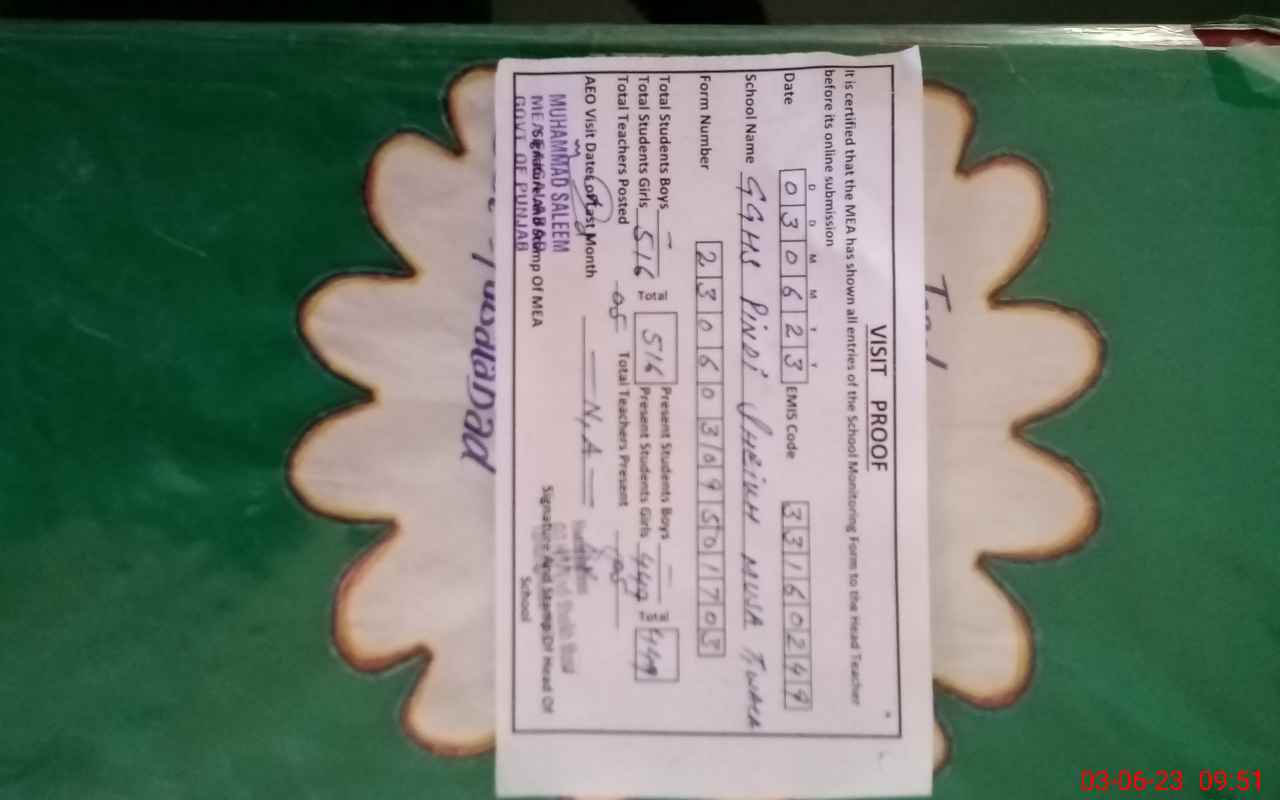 VISIT PROOF
It is certified that the MEA has shown all entries of the School Monitoring Form to the Head Teacher
before its online submission
D D M M Y Y
Date 030623 EMIS Code 33160249
School Name GGHS PINDI SHEIKH MUSA
Form Number 23060309501703
Total Students Boys — Total 516 Present Students Boys — Total 449
Total Students Girls 516 Present Students Girls 449
Total Teachers Posted 05 Total Teachers Present 05
AEO Visit Dates of Last Month — N,A —
MUHAMMAD SALEEM
GOVT OF PUNJAB
Signature and Stamp Of MEA
Signature And Stamp Of Head Of
School
03-06-23 09:51